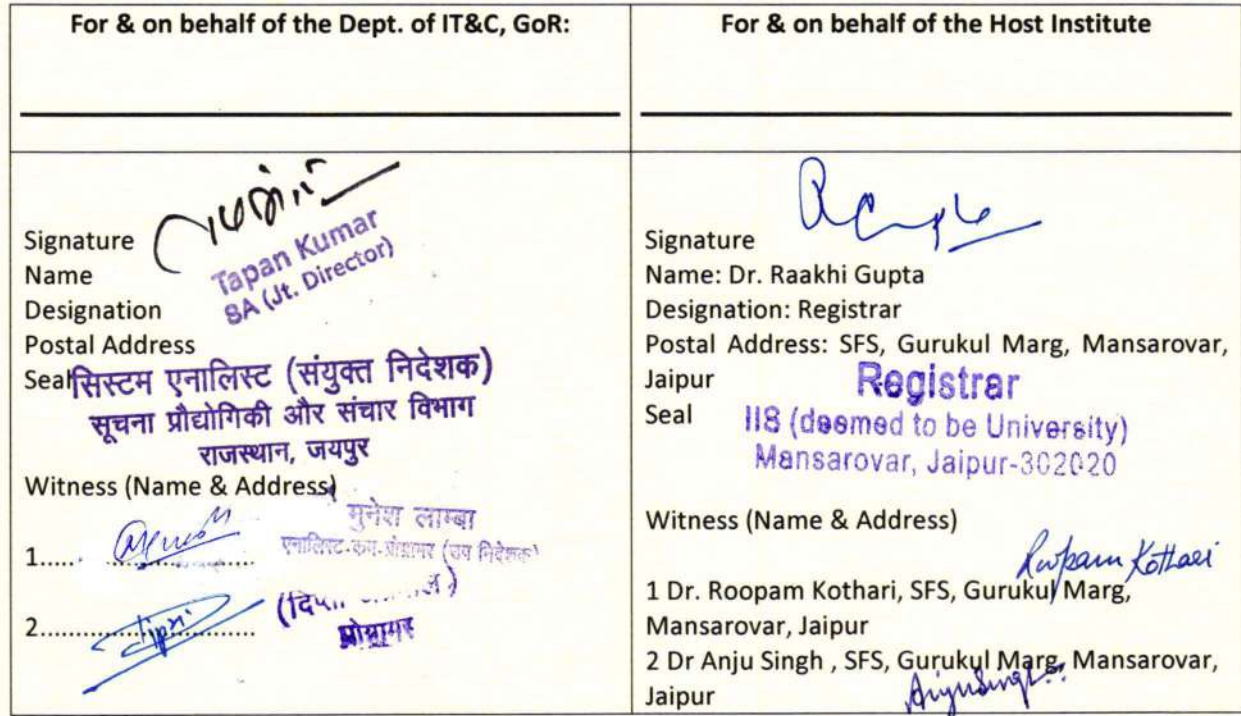 For & on behalf of the Dept. of IT&C, GoR:
Signature
Tapan Kumar
Name
SA (Jt. Director)
Designation
Postal Address
Seal सिस्टम एनालिस्ट (संयुक्त निदेशक)
सूचना प्रौद्योगिकी और संचार विभाग
राजस्थान, जयपुर
Witness (Name & Address)
मुनेश लाम्बा
एनालिस्ट-कम-प्रोग्रामर (उप निदेशक)
1.....................
2.....................
प्रोग्रामर
For & on behalf of the Host Institute
Signature
Name: Dr. Raakhi Gupta
Designation: Registrar
Postal Address: SFS, Gurukul Marg, Mansarovar,
Jaipur
Registrar
Seal
IIS (deemed to be University)
Mansarovar, Jaipur-302020
Witness (Name & Address)
Roopam Kothari
1 Dr. Roopam Kothari, SFS, Gurukul Marg,
Mansarovar, Jaipur
2 Dr Anju Singh , SFS, Gurukul Marg, Mansarovar,
Jaipur
Anju Singh